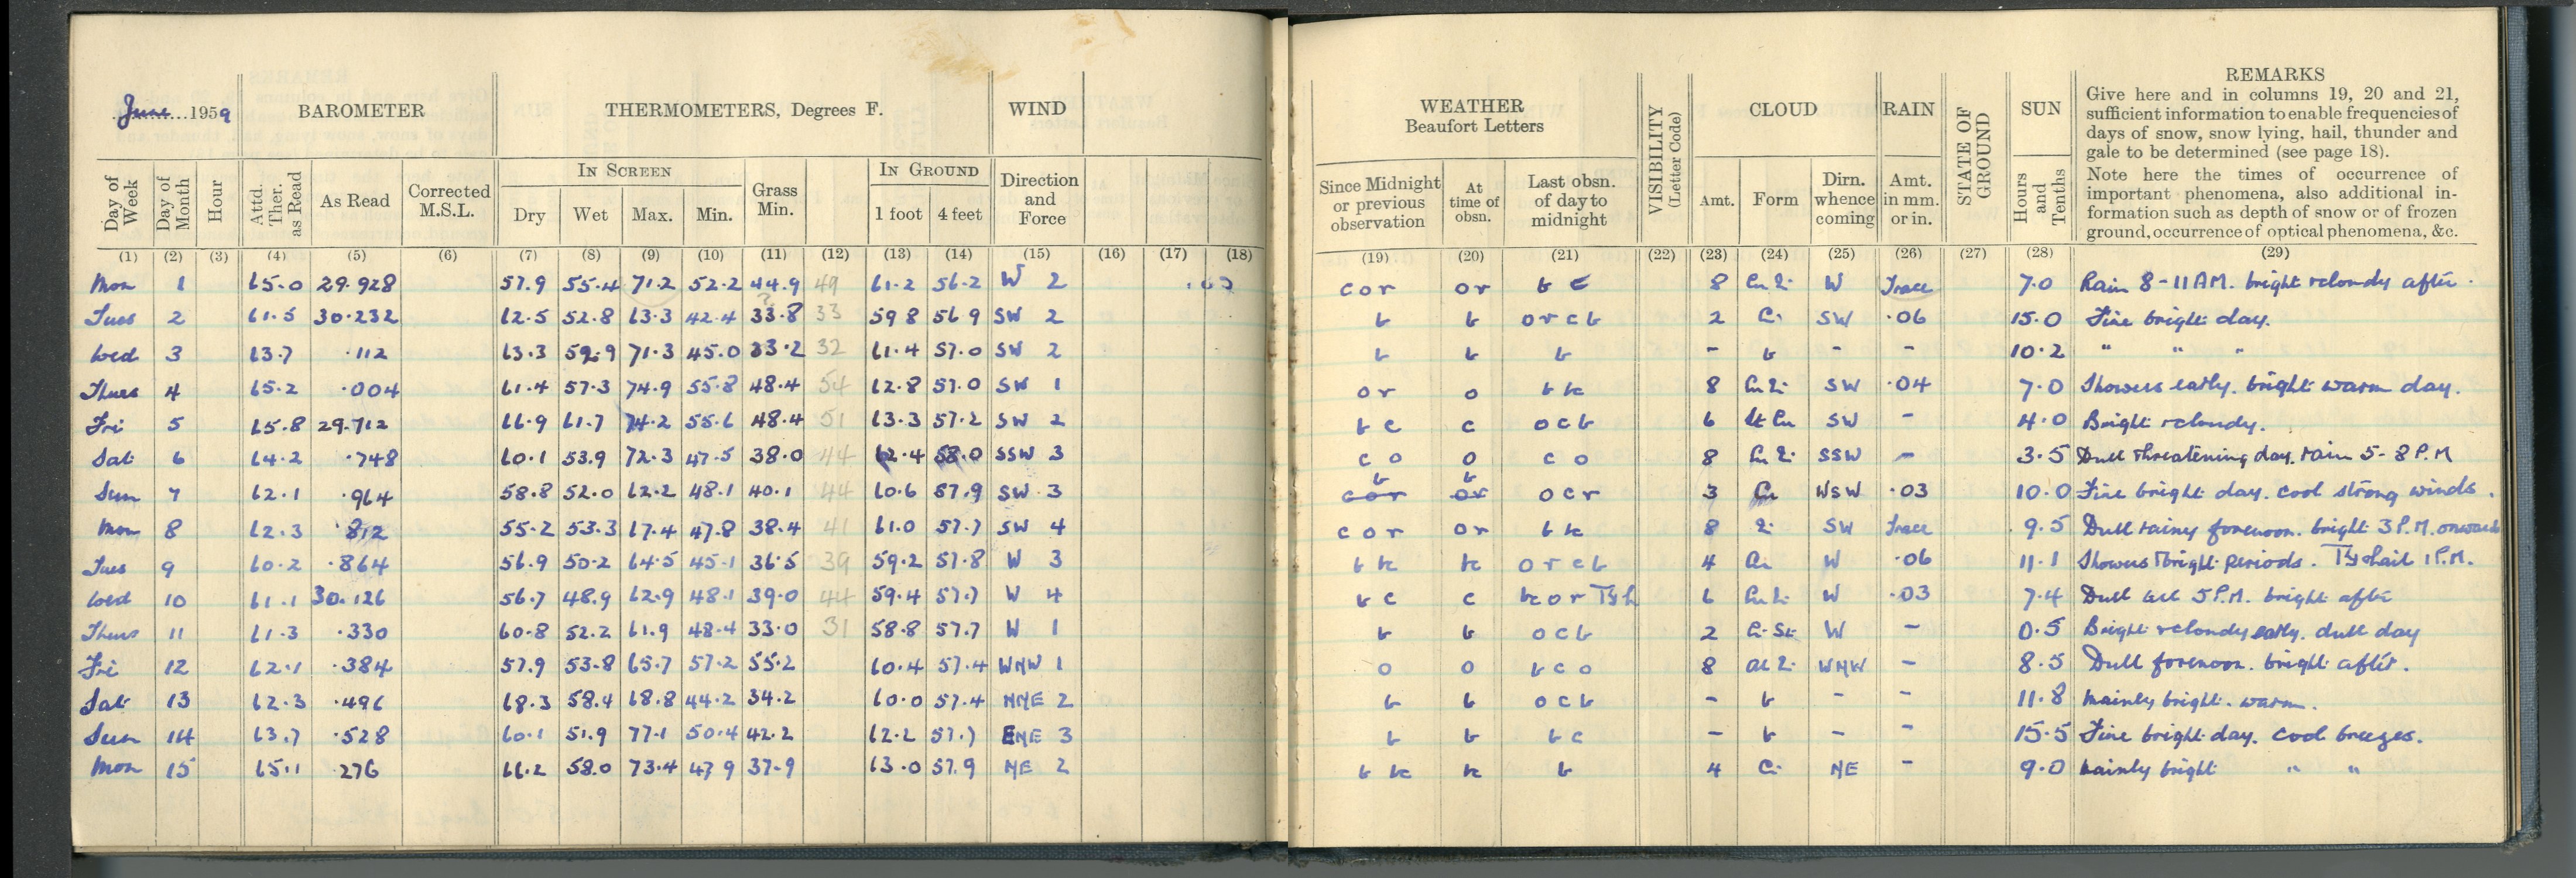 June 1959 BAROMETER THERMOMETERS, Degrees F. WIND
Day of Week Day of Month Hour Attd. Ther. as Read As Read Corrected M.S.L. IN SCREEN Dry Wet Max. Min. Grass Min. IN GROUND 1 foot 4 feet Direction and Force
(1) (2) (3) (4) (5) (6) (7) (8) (9) (10) (11) (12) (13) (14) (15) (16) (17) (18)
Mon 1 65.0 29.928 57.9 55.4 71.2 52.2 44.9 49 61.2 56.2 W 2
Tues 2 61.5 30.232 62.5 52.8 63.3 42.4 33.8 33 59.8 56.9 SW 2
Wed 3 63.7 .112 63.3 59.9 71.3 45.0 33.2 32 61.4 57.0 SW 2
Thurs 4 65.2 .004 61.4 57.3 74.9 55.8 48.4 54 62.8 57.0 SW 1
Fri 5 65.8 29.712 66.9 61.7 74.2 55.6 48.4 51 63.3 57.2 SW 2
Sat 6 64.2 .748 60.1 53.9 72.3 47.5 38.0 44 62.4 58.0 SSW 3
Sun 7 62.1 .964 58.8 52.0 62.2 48.1 40.1 44 60.6 57.9 SW 3
Mon 8 62.3 .812 55.2 53.3 67.4 47.8 38.4 41 61.0 57.7 SW 4
Tues 9 60.2 .864 56.9 50.2 64.5 45.1 36.5 39 59.2 57.8 W 3
Wed 10 61.1 30.126 56.7 48.9 62.9 48.1 39.0 44 59.4 57.7 W 4
Thurs 11 61.3 .330 60.8 52.2 61.9 48.4 33.0 31 58.8 57.7 W 1
Fri 12 62.1 .384 57.9 53.8 65.7 57.2 55.2 60.4 57.4 WNW 1
Sat 13 62.3 .496 68.3 58.4 68.8 44.2 34.2 60.0 57.4 NNE 2
Sun 14 63.7 .528 60.1 51.9 77.1 50.4 42.2 62.2 57.7 ENE 3
Mon 15 65.1 .276 66.2 58.0 73.4 47.9 37.9 63.0 57.9 NE 2
WEATHER Beaufort Letters VISIBILITY (Letter Code) CLOUD RAIN STATE OF GROUND SUN REMARKS
Since Midnight or previous observation At time of obsn. Last obsn. of day to midnight Amt. Form Dirn. whence coming Amt. in mm. or in. Hours and Tenths
Give here and in columns 19, 20 and 21,
sufficient information to enable frequencies of
days of snow, snow lying, hail, thunder and
gale to be determined (see page 18).
Note here the times of occurrence of
important phenomena, also additional in-
formation such as depth of snow or of frozen
ground, occurrence of optical phenomena, &c.
(19) (20) (21) (22) (23) (24) (25) (26) (27) (28) (29)
c o r o r b c 8 W Trace 7.0 Rain 8-11 AM. bright & cloudy after.
b b o r c b 2 Ci SW .06 15.0 Fine bright day.
b b b - b - - 10.2 " " "
o r o b c 8 SW .04 7.0 Showers early. bright warm day.
b c c o c b 6 SW - 4.0 Bright & cloudy.
c o o c o 8 SSW - 3.5 Dull threatening day. rain 5-8 P.M
b b
c o r o r o c r 3 Cu WSW .03 10.0 Fine bright day. cool strong winds.
c o r o r b c 8 SW Trace 9.5 Dull rainy forenoon. bright 3 P.M. onwards
b c c o r c b 4 W .06 11.1 Showers & bright periods. T & hail 1 P.M.
b c c W .03 7.4 Dull till 5 P.M. bright after
b b o c b 2 Ci-St W - 0.5 Bright & cloudy early. dull day
o o b c o 8 WNW - 8.5 Dull forenoon. bright after.
b b o c b - b - - 11.8 Mainly bright. warm.
b b b c - b - - 15.5 Fine bright day. cool breezes.
b c c b 4 Ci NE - 9.0 Mainly bright " "